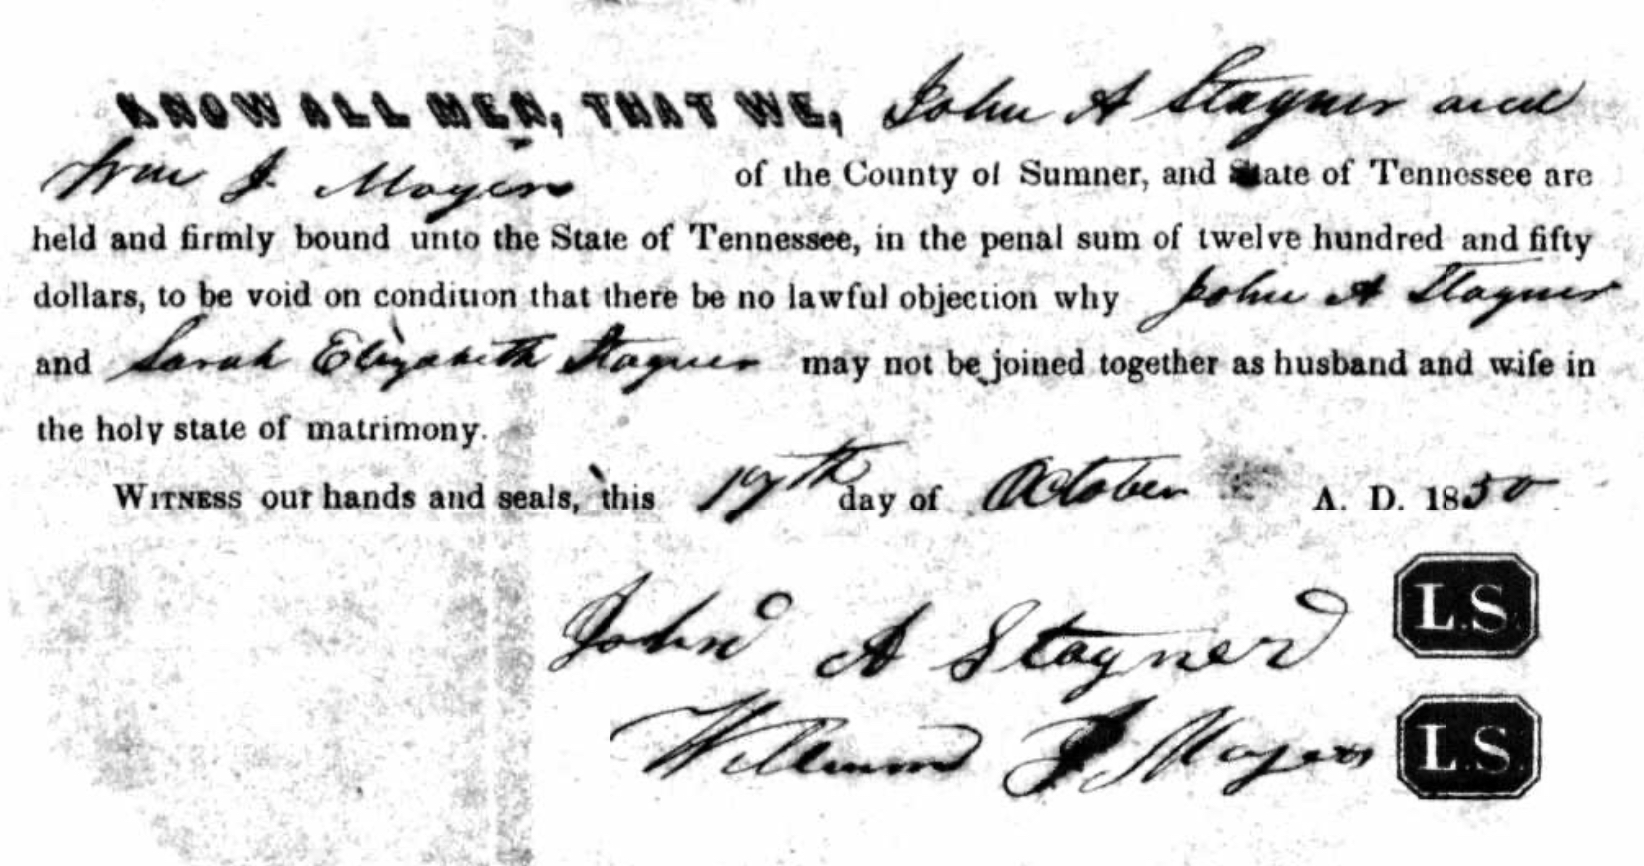 KNOW ALL MEN, THAT WE, John A Stagner and
Wm J. Moyers of the County of Sumner, and State of Tennessee are
held and firmly bound unto the State of Tennessee, in the penal sum of twelve hundred and fifty
dollars, to be void on condition that there be no lawful objection why John A Stagner
and Sarah Elizabeth Stagner may not be joined together as husband and wife in
the holy state of matrimony.
WITNESS our hands and seals, this 17th day of October A. D. 1850
John A Stagner L.S.
William J Moyers L.S.